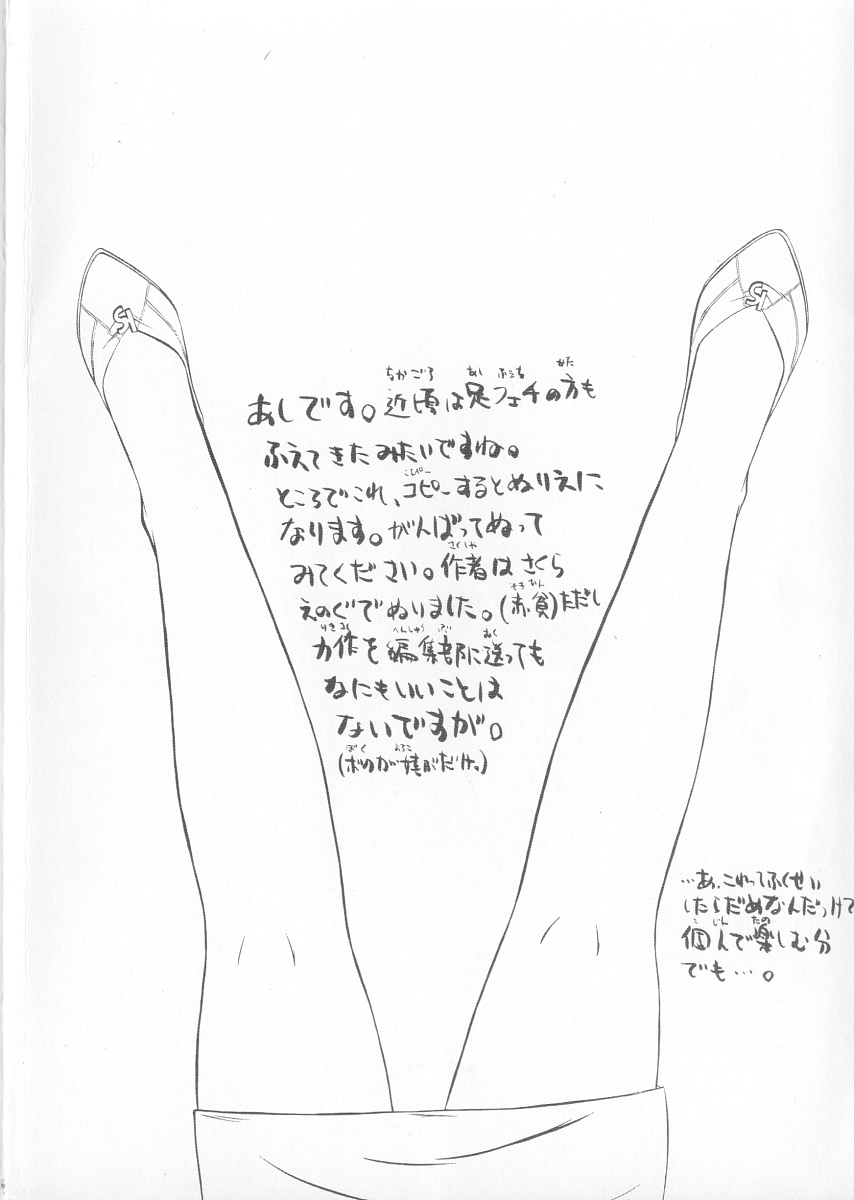 あしです。近頃は足フェチの方も
ふえてきたみたいですね。
ところでこれ、コピーするとぬりえに
なります。がんばってぬって
みてください。作者はさくら
えのぐでぬりました。(赤貧)ただし
力作を編集部に送っても
なにもいいことは
ないですが。
(ボクが喜ぶだけ。)
…あ、これってふくせい
したらだめなんだっけ?
個人で楽しむ分
でも…。